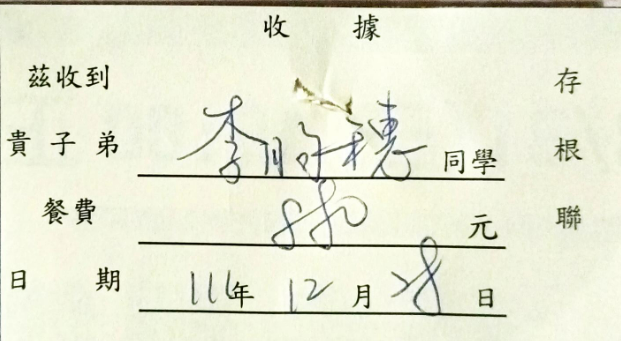 收據
茲收到
貴子弟 李昕穗 同學
餐費 880 元
日期 111年 12月 28日
存根聯